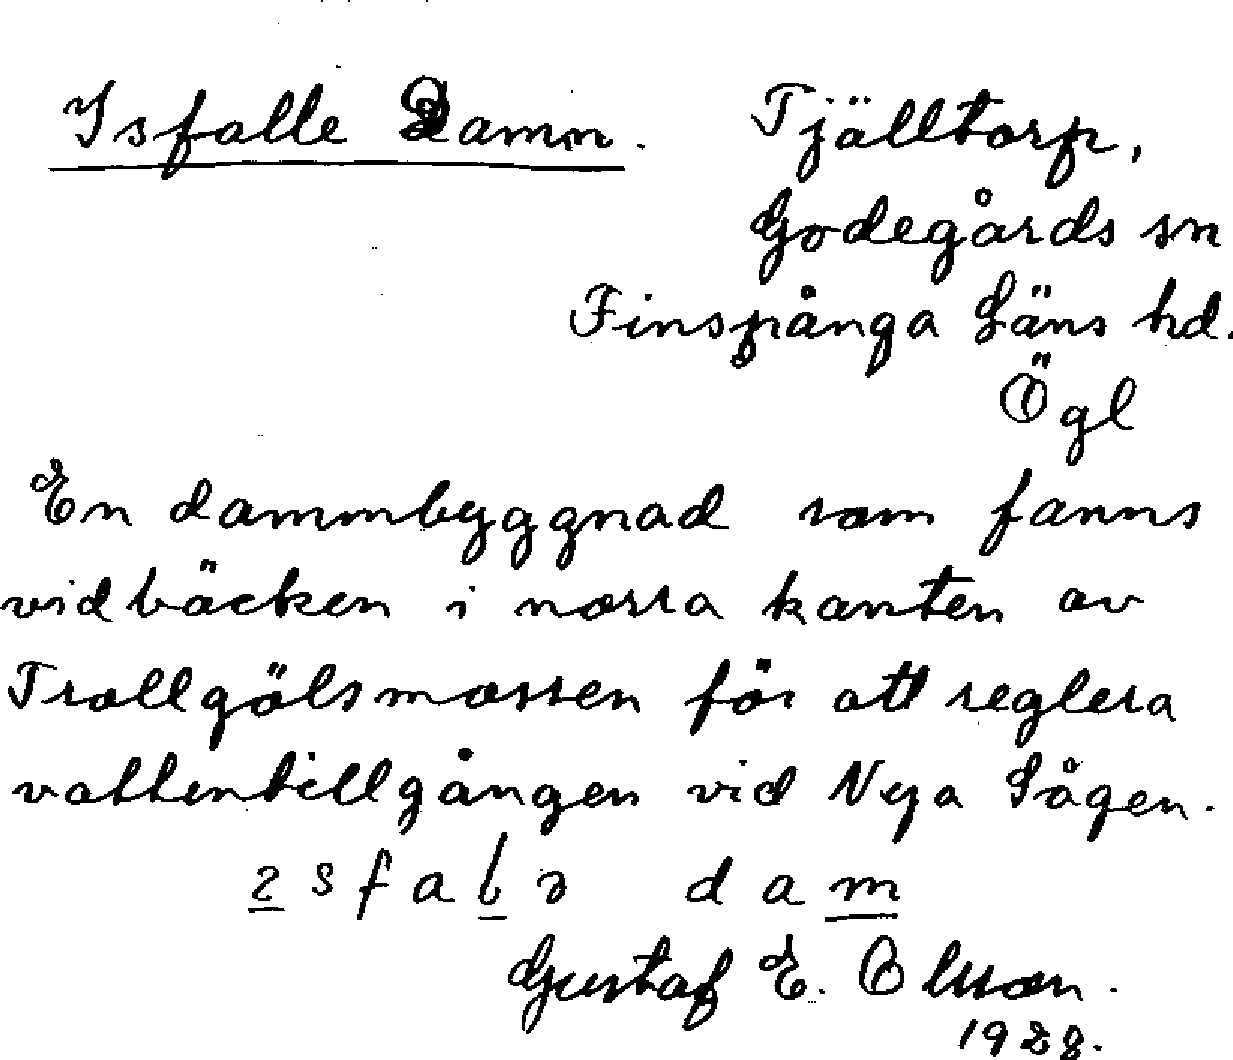 Isfalle Damm. Tjälltorp,
Godegårds sn
Finspånga Läns hd.
Ögl
En dammbyggnad som fanns
vid bäcken i norra kanten av
Trollgölsmossen för att reglera
vattentillgången vid Nya Sågen.
Gustaf E. Olsson.
1928.